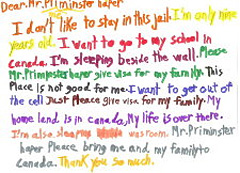 Dear.Mr.Priminster haper
I don't like to stay in this jail. I'm only nine
years old. I want to go to my school in
Canada. I'm sleeping beside the wall. Please
Mr.Priminster haper give visa for my family. This
Place is not good for me. I want to get out of
the cell Just Pleace give visa for my family. My
home land is in canada, My life is over there.
I'm also sleeping was room. Mr.Priminster
haper Pleace bring me and my family to
Canada. Thank you so much.